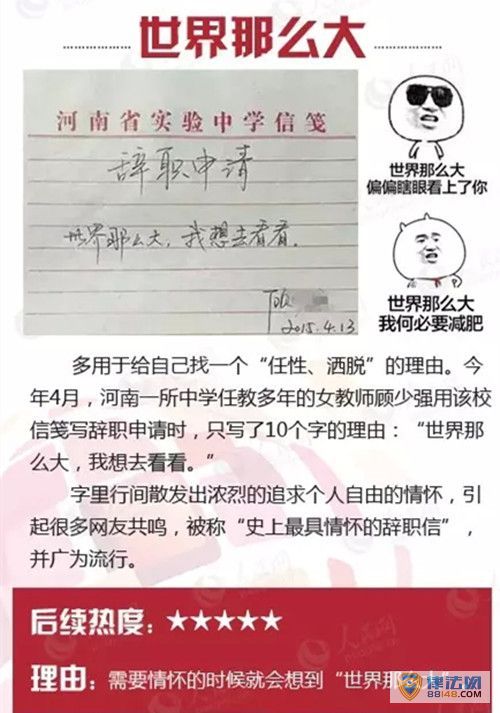 世界那么大
河南省实验中学信笺
辞职申请
世界那么大，我想去看看。
2015.4.13
世界那么大
偏偏瞎眼看上了你
世界那么大
我何必要减肥
多用于给自己找一个“任性、洒脱”的理由。今
年4月，河南一所中学任教多年的女教师顾少强用该校
信笺写辞职申请时，只写了10个字的理由：“世界那
么大，我想去看看。”
字里行间散发出浓烈的追求个人自由的情怀，引
起很多网友共鸣，被称“史上最具情怀的辞职信”，
并广为流行。
后续热度：★★★★★
理由：需要情怀的时候就会想到“世界那
律法网
88148.com